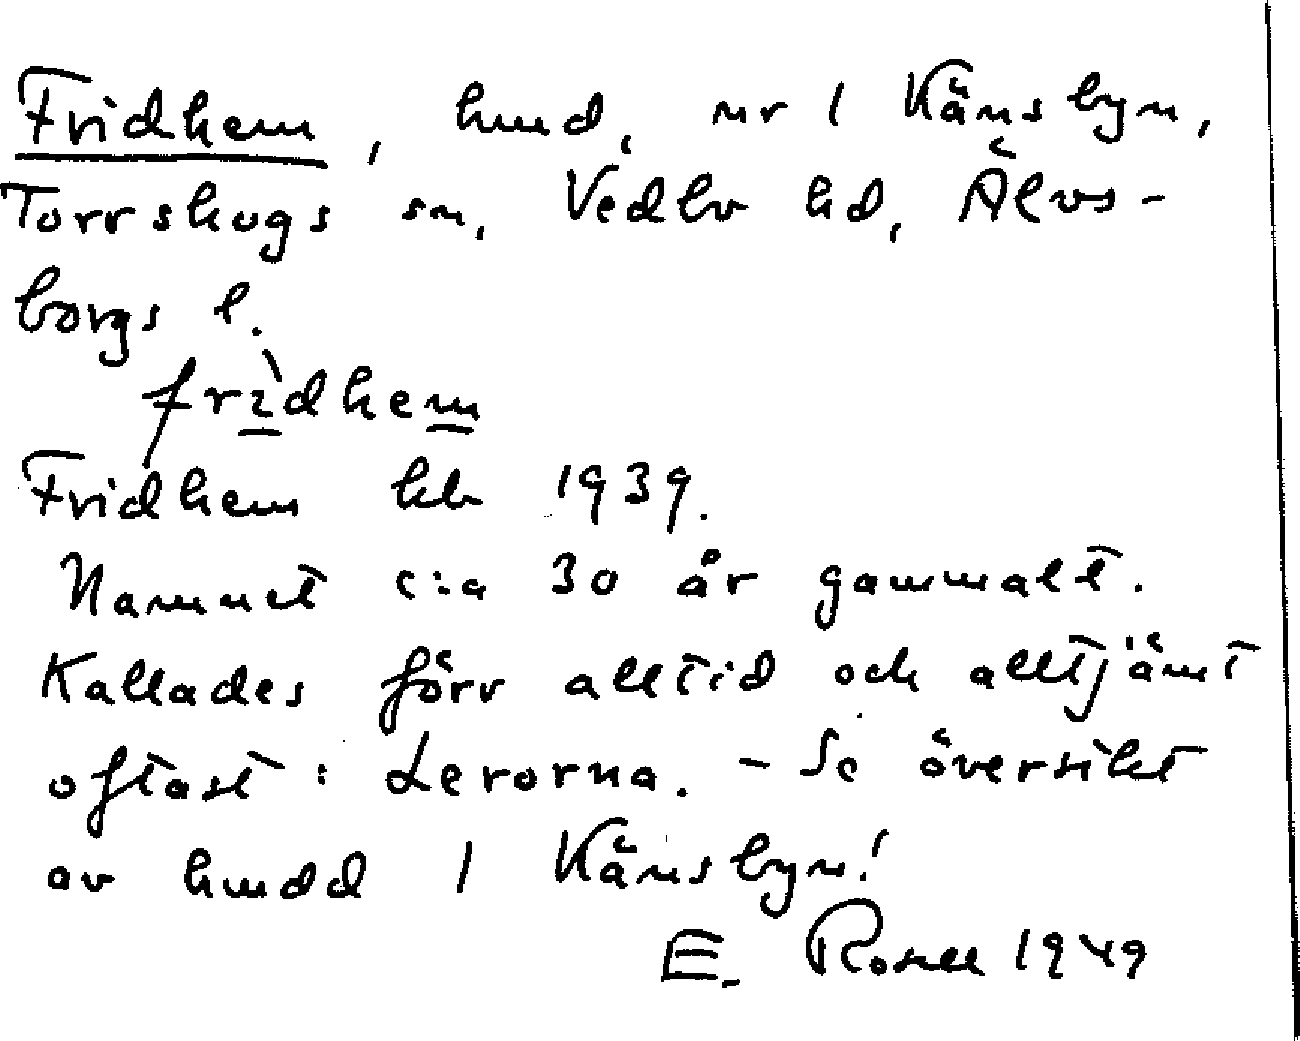 Fridhem, hmd, nr 1 Känsbyn,
Torrskogs sn, Vedbo hd, Älvs-
borgs l.
frìdhem
Fridhem kb 1939.
Namnet c:a 30 år gammalt.
Kallades förr alltid och alltjämt
oftast: Lerorna. - Se översikt
av hmdd 1 Känsbyn!
E. Rosell 1949